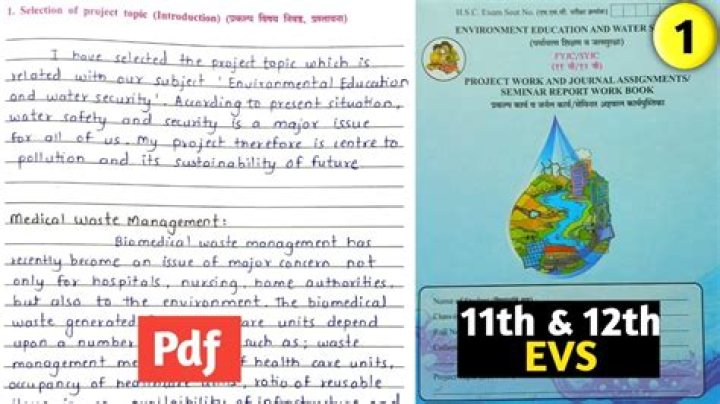 1. Selection of project topic (Introduction) (प्रकल्प विषय निवड, प्रस्तावना)
I have selected the project topic which is
related with our subject 'Environmental Education
and water security'. According to present situation,
water safety and security is a major issue
for all of us. My project therefore is centre to
pollution and its sustainability of future
Medical Waste Management:
Biomedical waste management has
recently become an issue of major concern not
only for hospitals, nursing, home authorities,
but also to the environment. The biomedical
waste generated are units depend
upon a number such as; waste
management me of health care units,
occupancy of healthcare units, ratio of reusable
Pdf
H.S.C. Exam Seat No.
1
ENVIRONMENT EDUCATION AND WATER S
(पर्यावरण शिक्षण व जलसुरक्षा)
FYJC/SYJC
(११ वी/१२ वी)
PROJECT WORK AND JOURNAL ASSIGNMENTS/
SEMINAR REPORT WORK BOOK
प्रकल्प कार्य व जर्नल कार्य/सेमिनार अहवाल कार्यपुस्तिका
11th & 12th
EVS